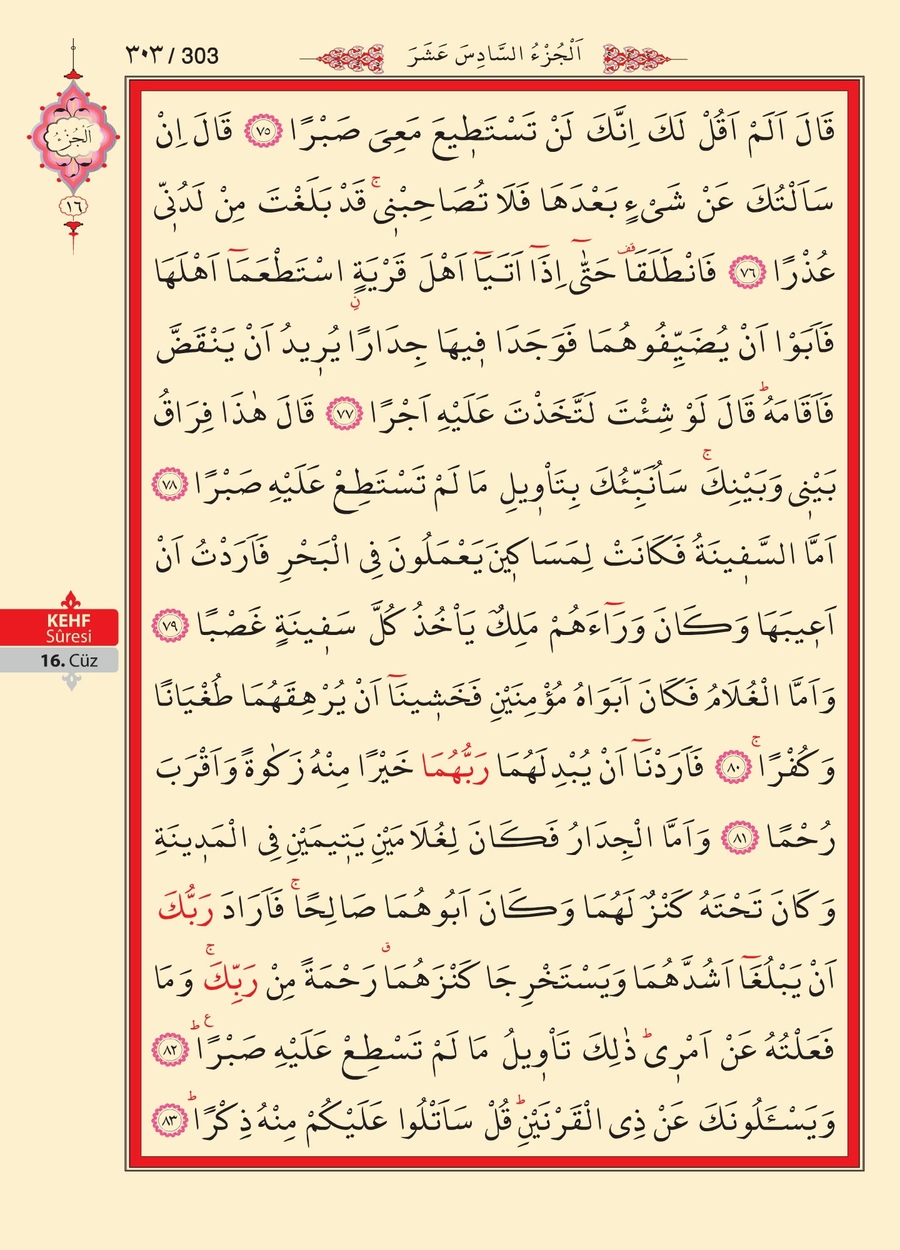 ٣٠٣ / 303
اَلْجُزْءُ السَّادِسَ عَشَرَ
اَلْجُزْءُ
١٦
قَالَ اَلَمْ اَقُلْ لَكَ اِنَّكَ لَنْ تَسْتَط۪يعَ مَعِيَ صَبْرًا ﴿٧٥﴾ قَالَ اِنْ
سَاَلْتُكَ عَنْ شَيْءٍ بَعْدَهَا فَلَا تُصَاحِبْن۪يۚ قَدْ بَلَغْتَ مِنْ لَدُنّ۪ي
عُذْرًا ﴿٧٦﴾ فَانْطَلَقَا۠ قف حَتّٰٓى اِذَٓا اَتَيَٓا اَهْلَ قَرْيَةٍۨ اسْتَطْعَمَٓا اَهْلَهَا
فَاَبَوْا اَنْ يُضَيِّفُوهُمَا فَوَجَدَا ف۪يهَا جِدَارًا يُر۪يدُ اَنْ يَنْقَضَّ
فَاَقَامَهُۜ قَالَ لَوْ شِئْتَ لَتَّخَذْتَ عَلَيْهِ اَجْرًا ﴿٧٧﴾ قَالَ هٰذَا فِرَاقُ
بَيْن۪ي وَبَيْنِكَۚ سَاُنَبِّئُكَ بِتَاْو۪يلِ مَا لَمْ تَسْتَطِعْ عَلَيْهِ صَبْرًا ﴿٧٨﴾
اَمَّا السَّف۪ينَةُ فَكَانَتْ لِمَسَاك۪ينَ يَعْمَلُونَ فِي الْبَحْرِ فَاَرَدْتُ اَنْ
اَع۪يبَهَا وَكَانَ وَرَٓاءَهُمْ مَلِكٌ يَاْخُذُ كُلَّ سَف۪ينَةٍ غَصْبًا ﴿٧٩﴾
وَاَمَّا الْغُلَامُ فَكَانَ اَبَوَاهُ مُؤْمِنَيْنِ فَخَش۪ينَٓا اَنْ يُرْهِقَهُمَا طُغْيَانًا
وَكُفْرًاۚ ﴿٨٠﴾ فَاَرَدْنَٓا اَنْ يُبْدِلَهُمَا رَبُّهُمَا خَيْرًا مِنْهُ زَكٰوةً وَاَقْرَبَ
رُحْمًا ﴿٨١﴾ وَاَمَّا الْجِدَارُ فَكَانَ لِغُلَامَيْنِ يَت۪يمَيْنِ فِي الْمَد۪ينَةِ
وَكَانَ تَحْتَهُ كَنْزٌ لَهُمَا وَكَانَ اَبُوهُمَا صَالِحًاۚ فَاَرَادَ رَبُّكَ
اَنْ يَبْلُغَٓا اَشُدَّهُمَا وَيَسْتَخْرِجَا كَنْزَهُمَا ق رَحْمَةً مِنْ رَبِّكَۚ وَمَا
فَعَلْتُهُ عَنْ اَمْر۪يۜ ذٰلِكَ تَاْو۪يلُ مَا لَمْ تَسْطِعْ عَلَيْهِ صَبْرًاۜ ع ﴿٨٢﴾
وَيَسْـَٔلُونَكَ عَنْ ذِي الْقَرْنَيْنِۜ قُلْ سَاَتْلُوا عَلَيْكُمْ مِنْهُ ذِكْرًاۜ ﴿٨٣﴾
KEHF
Sûresi
16. Cüz